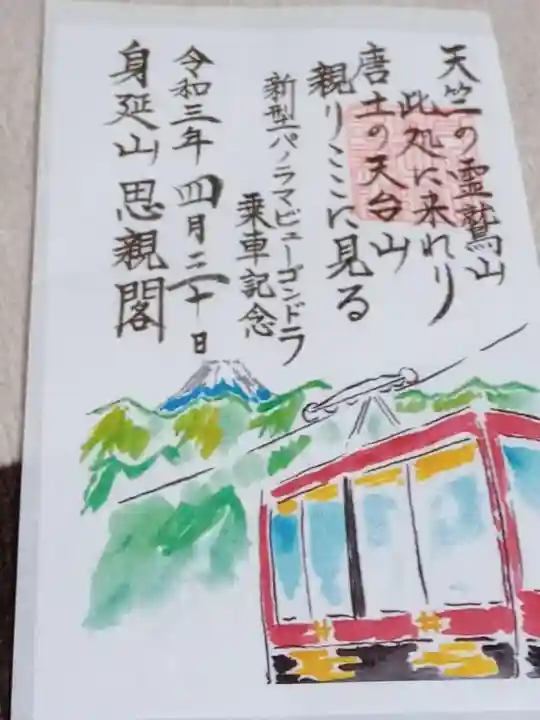 天竺の霊鷲山
此処に来れり
唐土の天台山
親りここに見る
新型パノラマビューゴンドラ
乗車記念
令和三年四月二十日
身延山思親閣